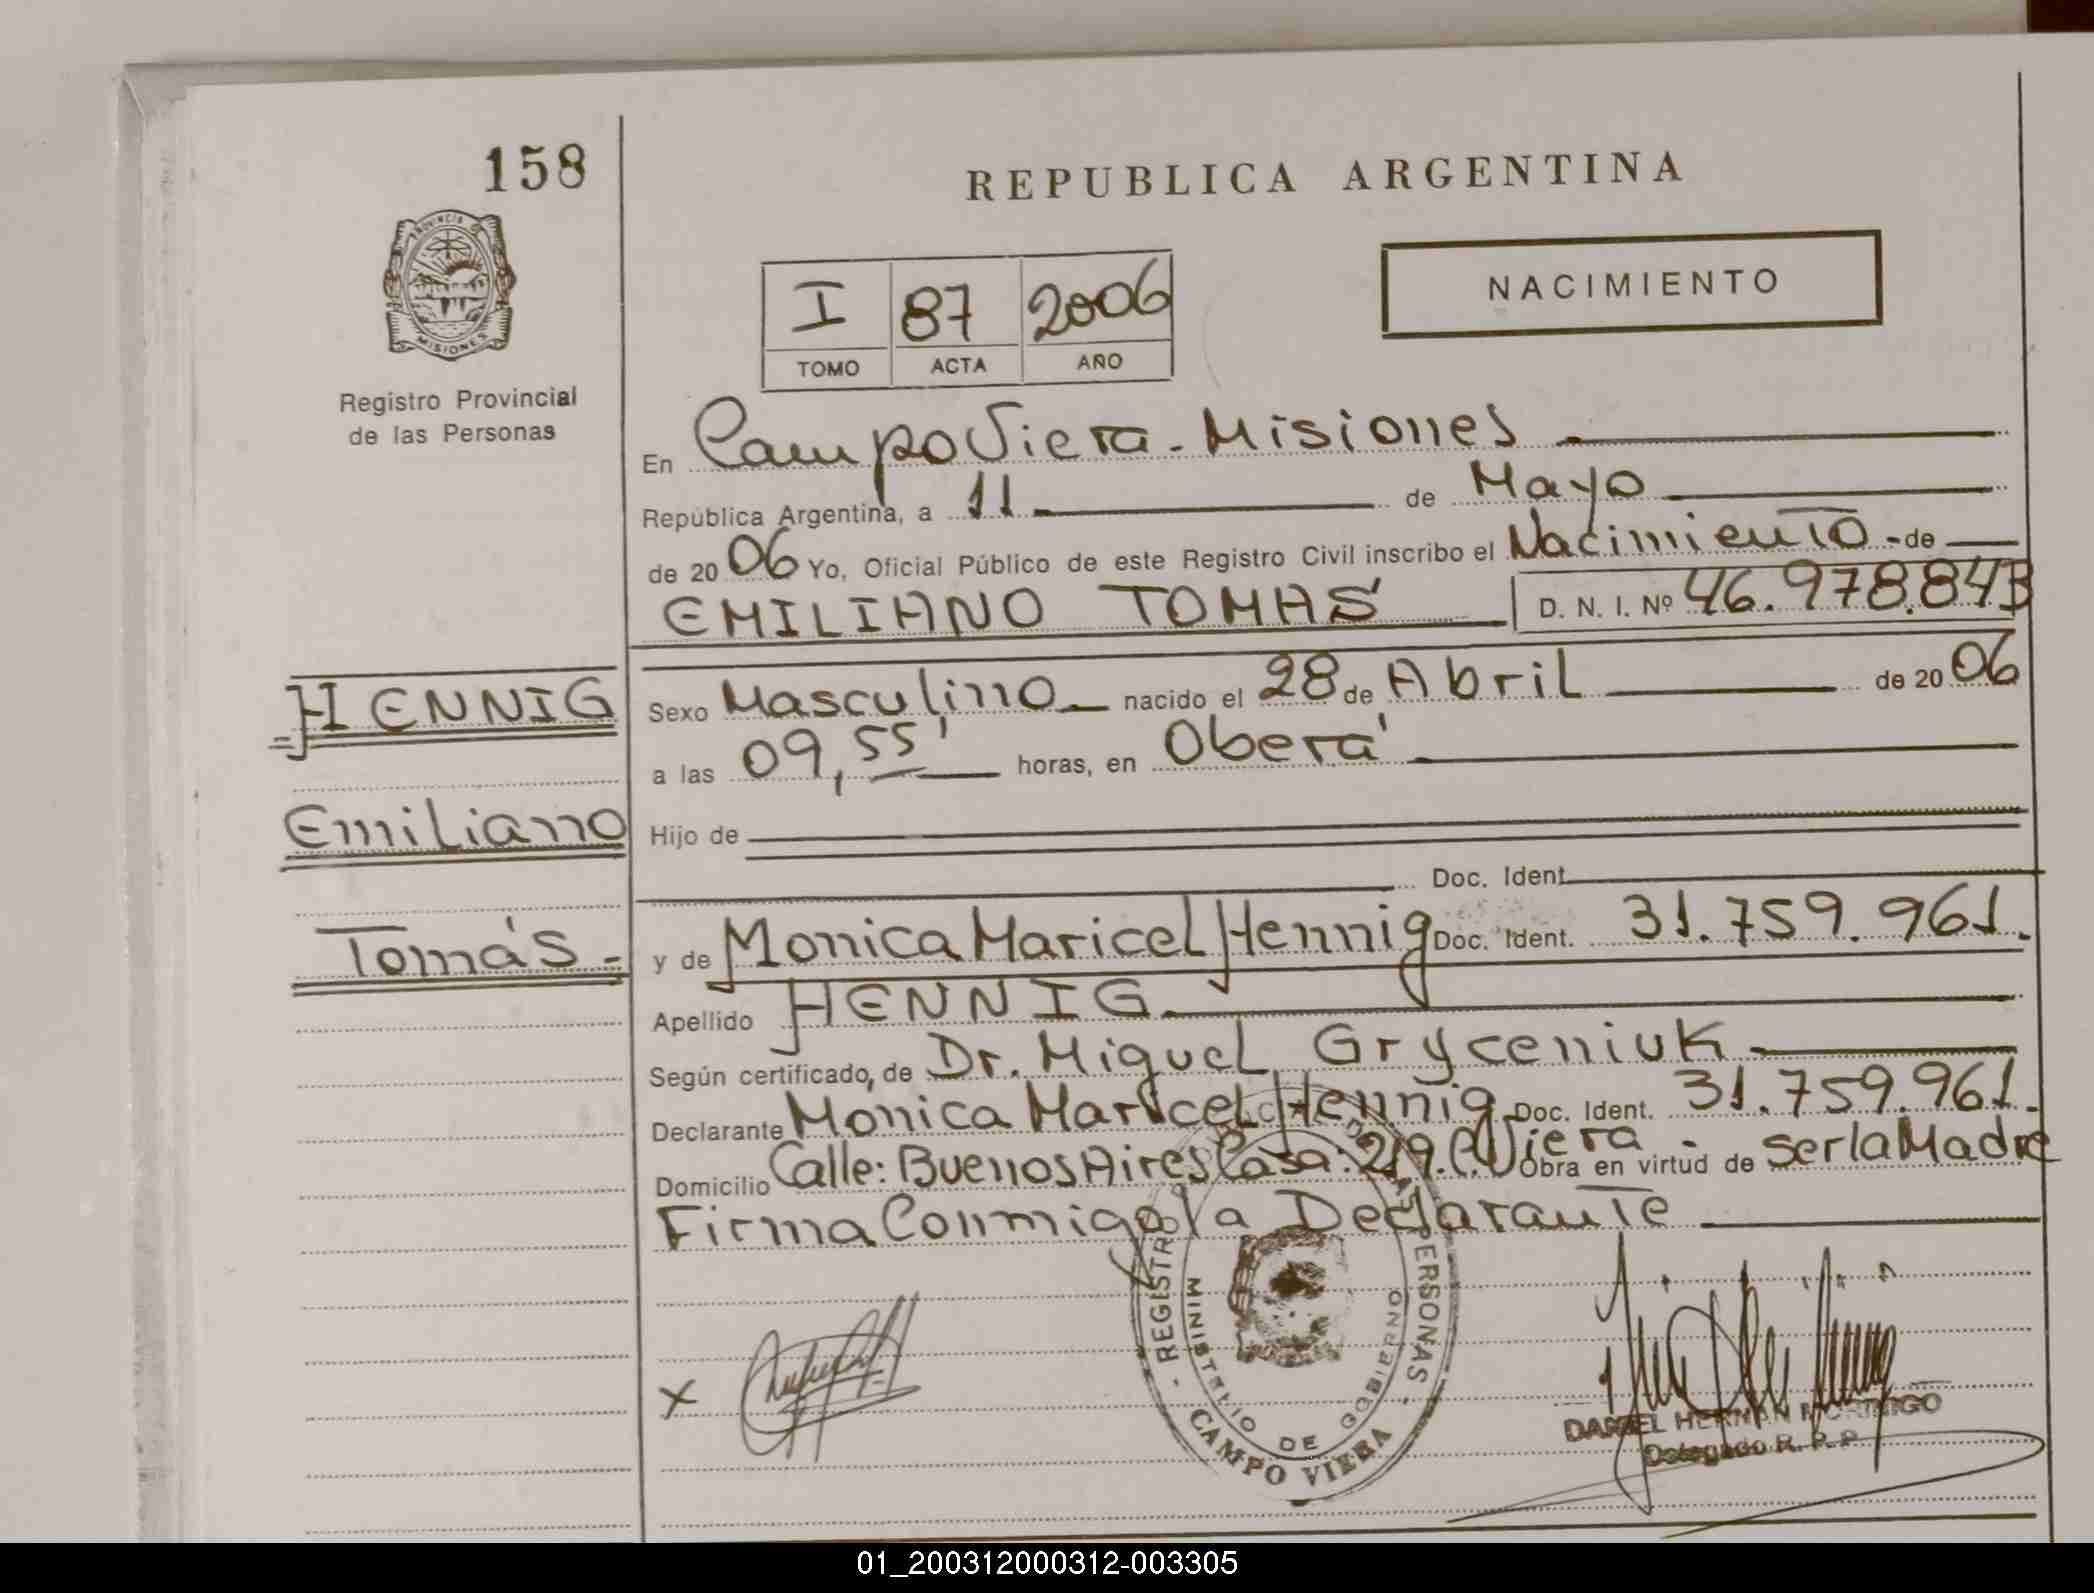 158
PROVINCIA DE
MISIONES
Registro Provincial
de las Personas
REPUBLICA ARGENTINA
NACIMIENTO
I 87 2006
TOMO ACTA AÑO
En Campo Viera - Misiones
República Argentina, a 11 de Mayo
de 2006 Yo, Oficial Público de este Registro Civil inscribo el Nacimiento - de
EMILIANO TOMÁS D. N. I. Nº 46.978.843
HENNIG
Sexo Masculino nacido el 28 de Abril de 2006
a las 09,55' horas, en Oberá
Emiliano
Hijo de
Doc. Ident.
Tomás =
y de Monica Maricel Hennig Doc. Ident. 31.759.961.
Apellido HENNIG
Según certificado, de Dr. Miguel Gryceniuk
Declarante Monica Maricel Hennig Doc. Ident. 31.759.961.
Domicilio Calle: Buenos Aires Casa: 219. C. Viera - Obra en virtud de ser la Madre
Firma Conmigo la Declarante
REGISTRO PERSONAS
MINISTERIO DE GOBIERNO
CAMPO VIERA
X
DANIEL HERNAN MORINIGO
Delegado R. P. P.
01_200312000312-003305